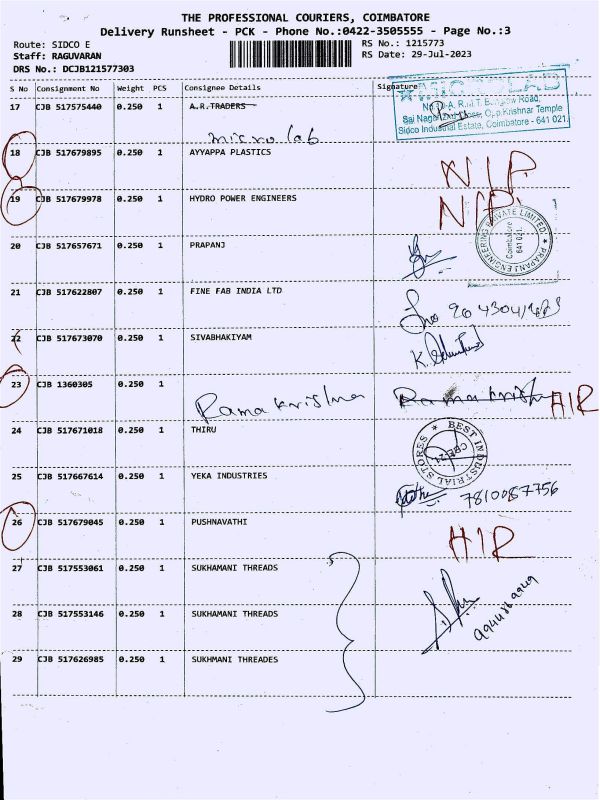 THE PROFESSIONAL COURIERS, COIMBATORE
Delivery Runsheet - PCK - Phone No.:0422-3505555 - Page No.:3
Route: SIDCO E
RS No.: 1215773
Staff: RAGUVARAN
RS Date: 29-Jul-2023
DRS No.: DCJB121577303
S No Consignment No Weight PCS Consignee Details Signature
17 CJB 517575440 0.250 1 A.R.TRADERS
micro lab
Sidco Industrial Estate, Coimbatore - 641 021.
18 CJB 517679895 0.250 1 AYYAPPA PLASTICS NIP
19 CJB 517679978 0.250 1 HYDRO POWER ENGINEERS NIP
PRAPANJ ENGINEERING PRIVATE LIMITED
Coimbatore
641 021.
20 CJB 517657671 0.250 1 PRAPANJ
21 CJB 517622807 0.250 1 FINE FAB INDIA LTD
22 CJB 517673070 0.250 1 SIVABHAKIYAM
23 CJB 1360305 0.250 1 Ramakrishna Ramakrishna HIR
24 CJB 517671018 0.250 1 THIRU
BEST INDUSTRIAL STORES
CBE-21
25 CJB 517667614 0.250 1 YEKA INDUSTRIES 7810087756
26 CJB 517679045 0.250 1 PUSHNAVATHI HIR
27 CJB 517553061 0.250 1 SUKHAMANI THREADS
28 CJB 517553146 0.250 1 SUKHAMANI THREADS
29 CJB 517626985 0.250 1 SUKHMANI THREADES